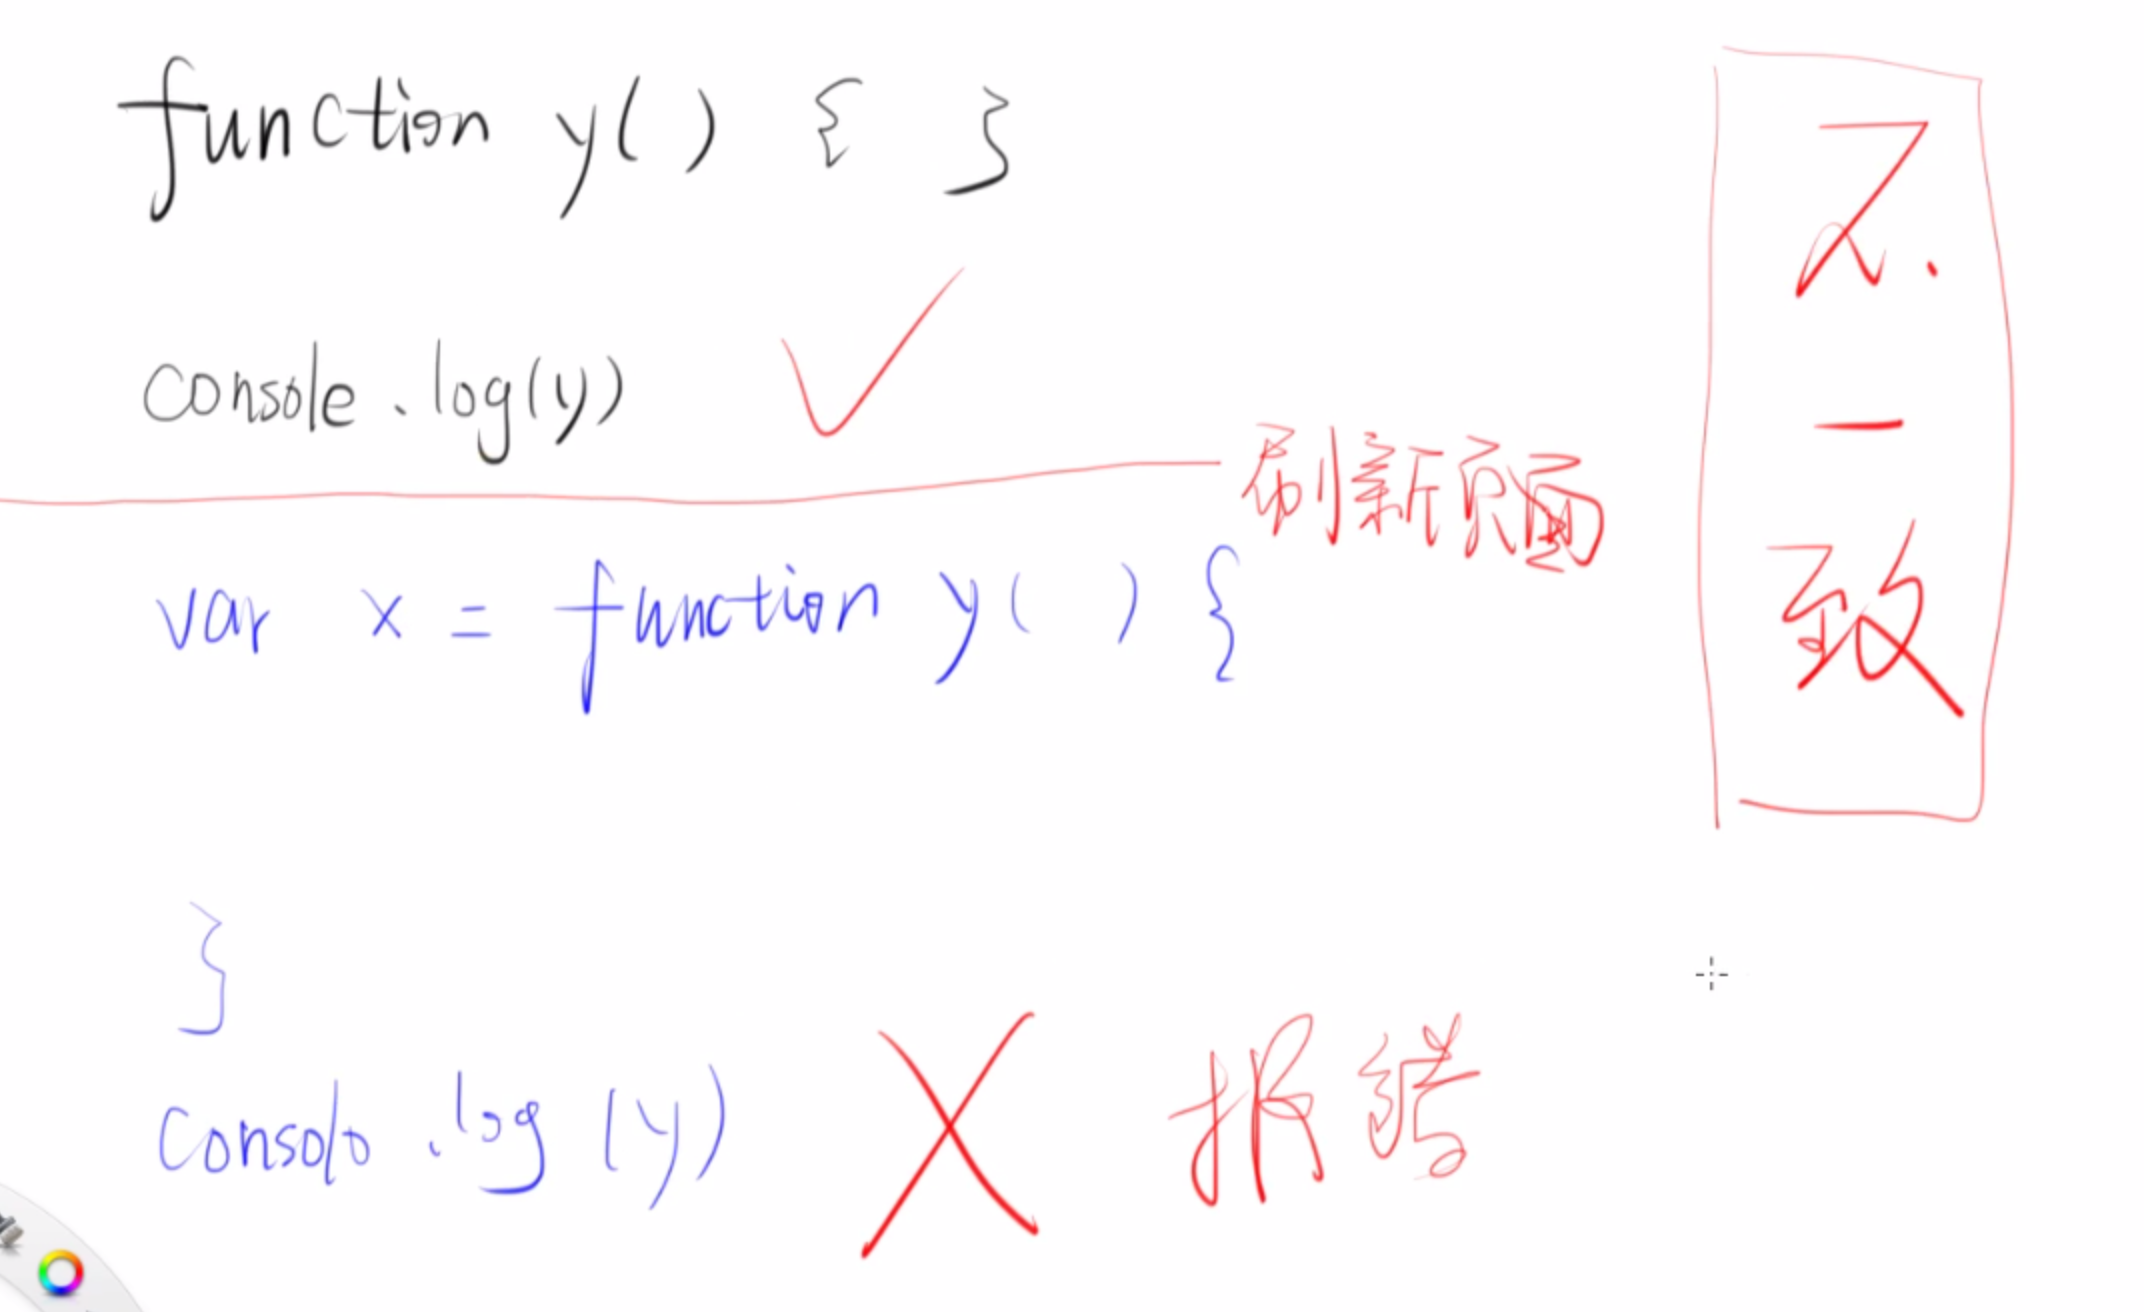 function y() { }
console.log(y)
刷新页面
var x = function y() {
}
console.log(y)
报错
不一致